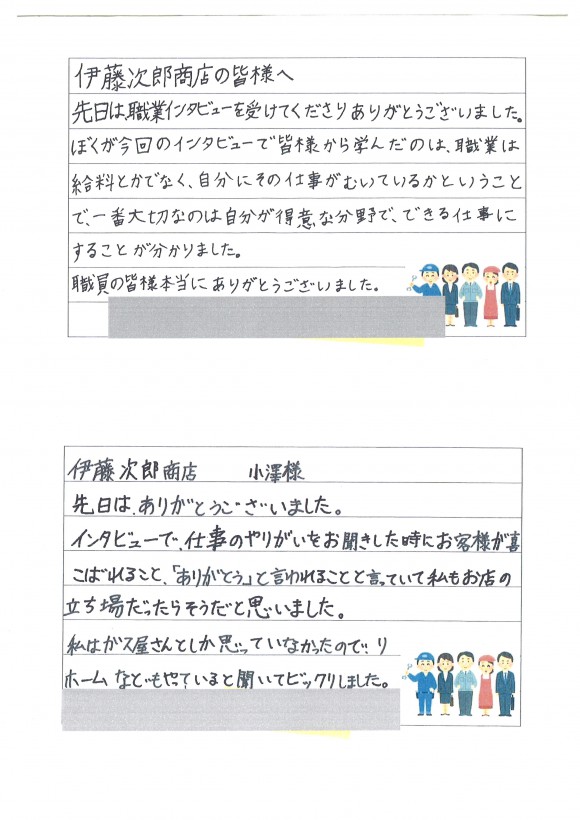 伊藤次郎商店の皆様へ
先日は職業インタビューを受けてくださりありがとうございました。
ぼくが今回のインタビューで皆様から学んだのは、職業は
給料とかでなく、自分にその仕事がむいているかということ
で、一番大切なのは自分が得意な分野で、できる仕事に
することが分かりました。
職員の皆様本当にありがとうございました。
伊藤次郎商店 小澤様
先日は、ありがとうございました。
インタビューで、仕事のやりがいをお聞きした時にお客様が喜
こばれること、「ありがとう」と言われることと言っていて私もお店の
立ち場だったらそうだと思いました。
私はガス屋さんとしか思っていなかったので、リ
ホームなどもやっていると聞いてビックリしました。